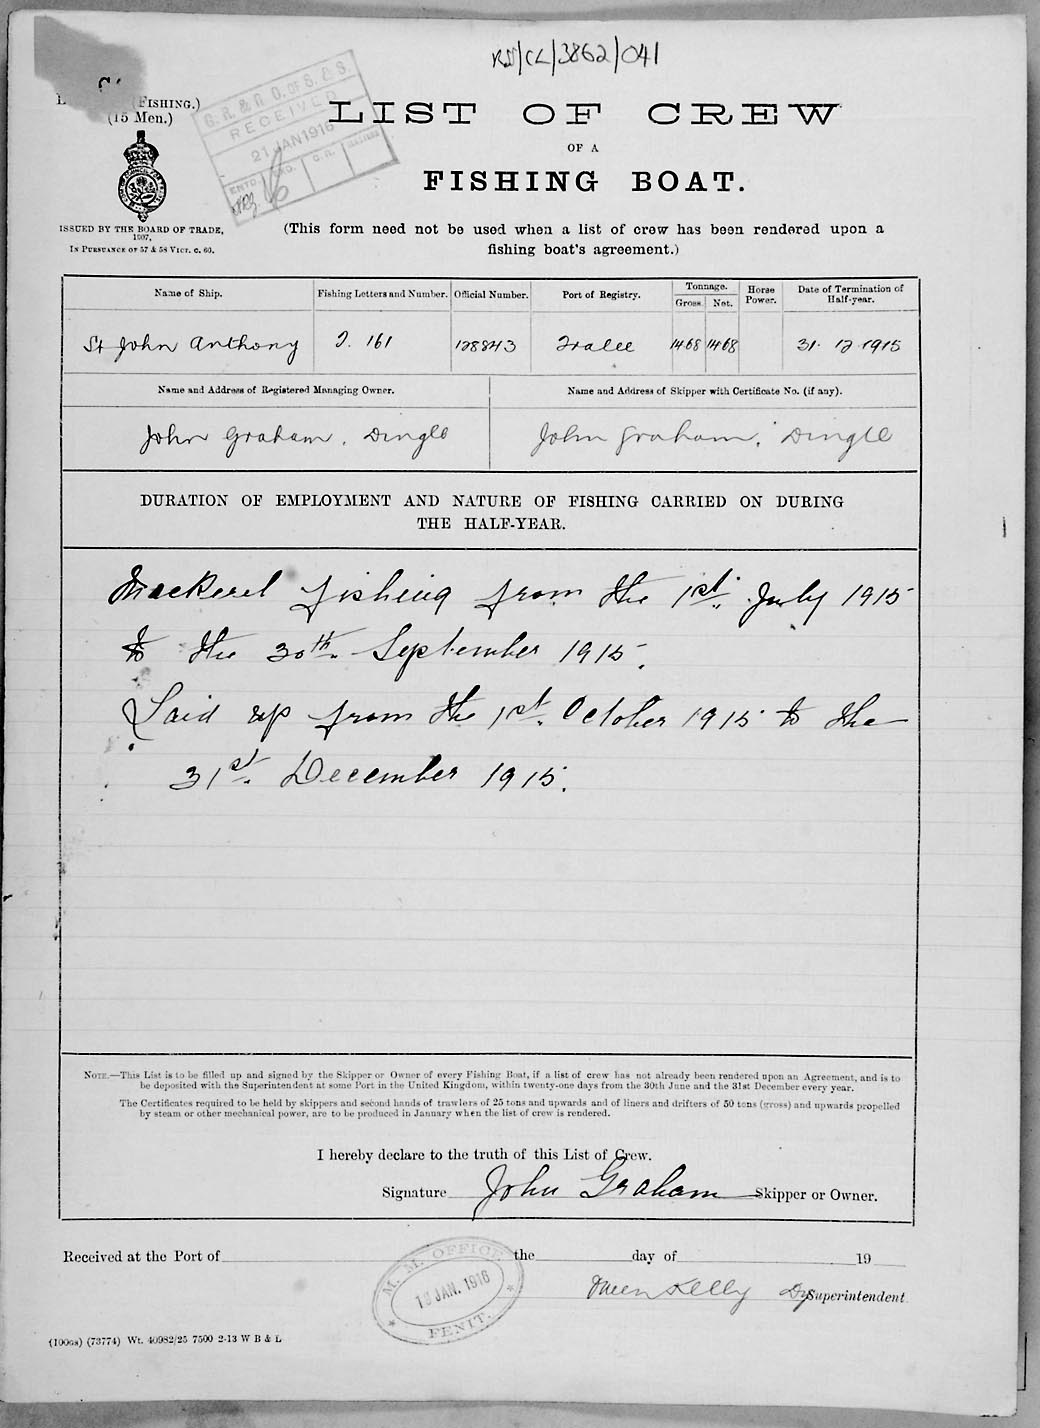 RS/CL/3862/041
(FISHING.)
(15 Men.)
G. R. & R. O. OF S. & S.
RECEIVED
21 JAN 1916
LIST OF CREW
OF A
FISHING BOAT.
ISSUED BY THE BOARD OF TRADE,
1907,
IN PURSUANCE OF 57 & 58 VICT. C. 60.
(This form need not be used when a list of crew has been rendered upon a
fishing boat's agreement.)
Name of Ship. Fishing Letters and Number. Official Number. Port of Registry. Tonnage. Gross. Net. Horse Power. Date of Termination of Half-year.
St John Anthony T. 161 128843 Tralee 14.68 14.68 31. 12 1915
Name and Address of Registered Managing Owner. Name and Address of Skipper with Certificate No. (if any).
John Graham, Dingle John Graham, Dingle
DURATION OF EMPLOYMENT AND NATURE OF FISHING CARRIED ON DURING
THE HALF-YEAR.
Mackerel fishing from the 1st. July 1915
to the 30th. September 1915.
Laid up from the 1st. October 1915 to the
31st. December 1915.
NOTE.—This List is to be filled up and signed by the Skipper or Owner of every Fishing Boat, if a list of crew has not already been rendered upon an Agreement, and is to
be deposited with the Superintendent at some Port in the United Kingdom, within twenty-one days from the 30th June and the 31st December every year.
The Certificates required to be held by skippers and second hands of trawlers of 25 tons and upwards and of liners and drifters of 50 tons (gross) and upwards propelled
by steam or other mechanical power, are to be produced in January when the list of crew is rendered.
I hereby declare to the truth of this List of Crew.
Signature John Graham Skipper or Owner.
Received at the Port of the day of 19
M. M. OFFICE
JAN. 1916
FENIT.
Owen Kelly Dy Superintendent.
(100GS) (73774) Wt. 40982/25 7500 2-13 W B & L